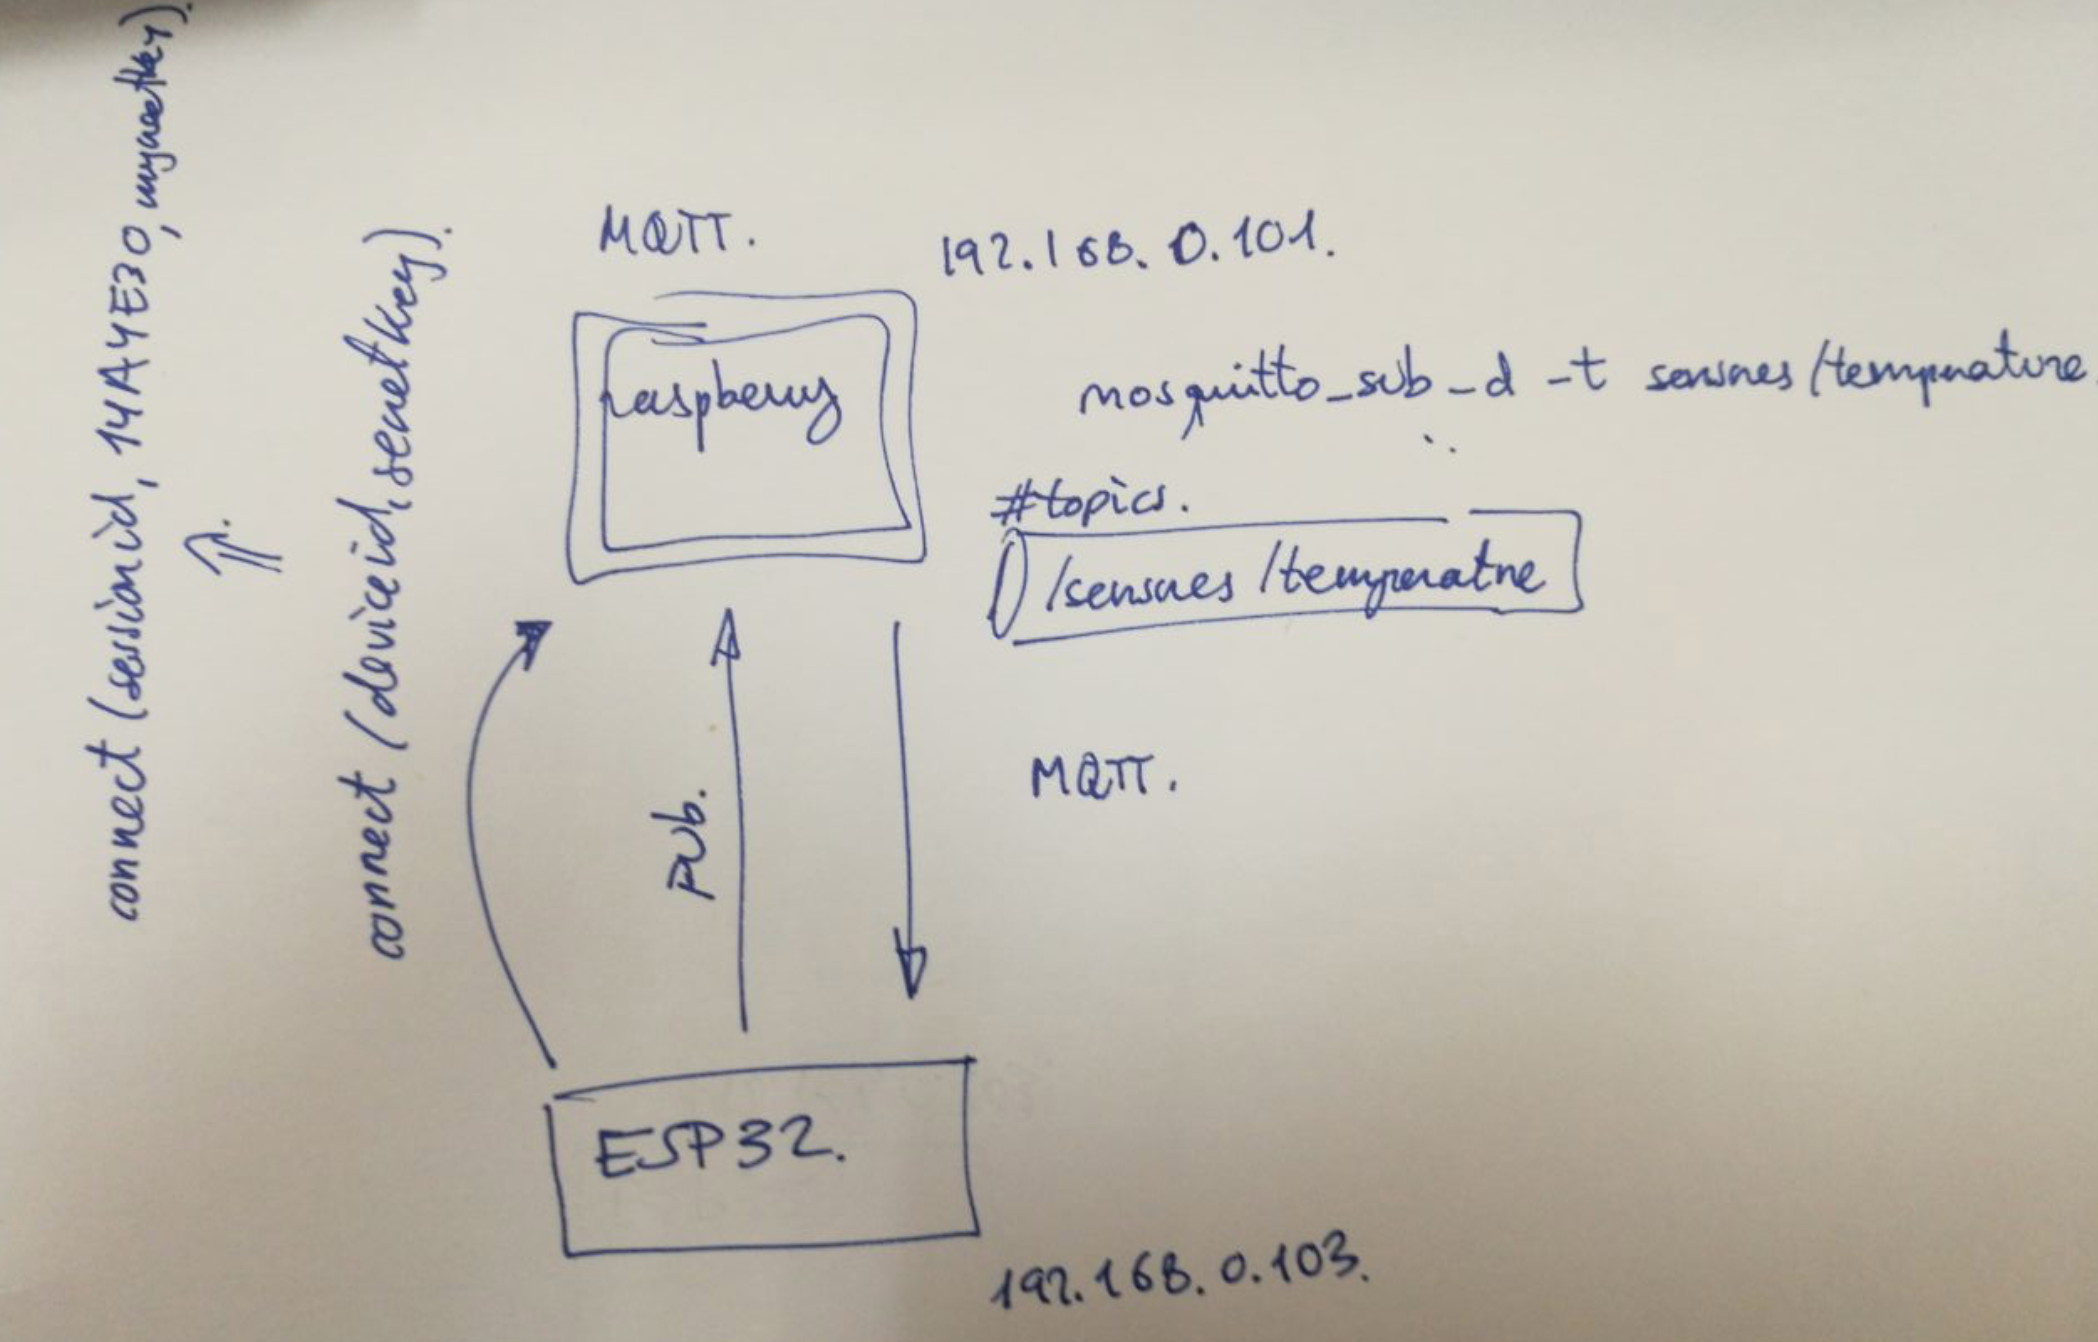 connect (sessionid, 14A4E30, mysecretkey).
connect (deviceid, secretkey).
MQTT.
192.168.0.101.
raspberry
mosquitto_sub -d -t sensores/temperature
#topics.
/sensores/temperature
pub.
MQTT.
ESP32.
192.168.0.103.